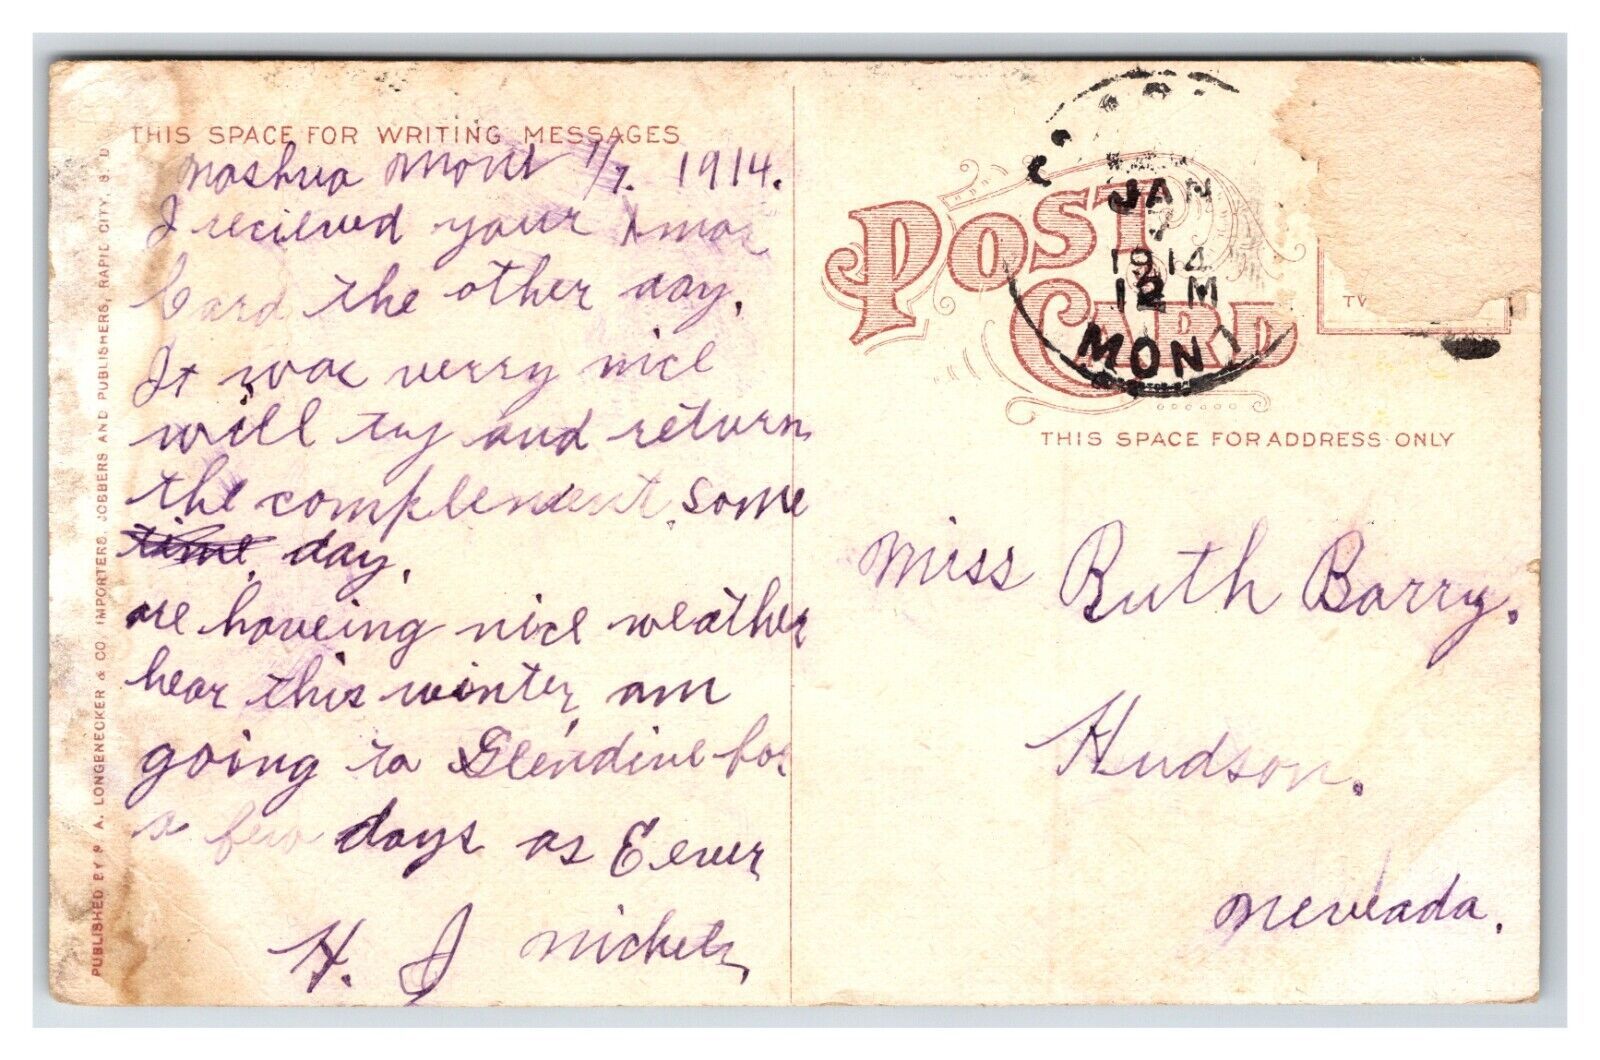 THIS SPACE FOR WRITING MESSAGES
Nashua Mont 1/7. 1914.
I recieved your Xmas
Card the other day.
It was verry nice
will try and return
the complendent some
time day.
are haveing nice weather
hear this winter, am
going to Glendive for
a few days as Eever
H. J Nickels
PUBLISHED BY P. A. LONGENECKER & CO. IMPORTERS, JOBBERS AND PUBLISHERS, RAPID CITY, S. D.
POST CARD
JAN
7
1914
12 M
MONT
THIS SPACE FOR ADDRESS ONLY
Miss Ruth Barry.
Hudson.
Neveada.